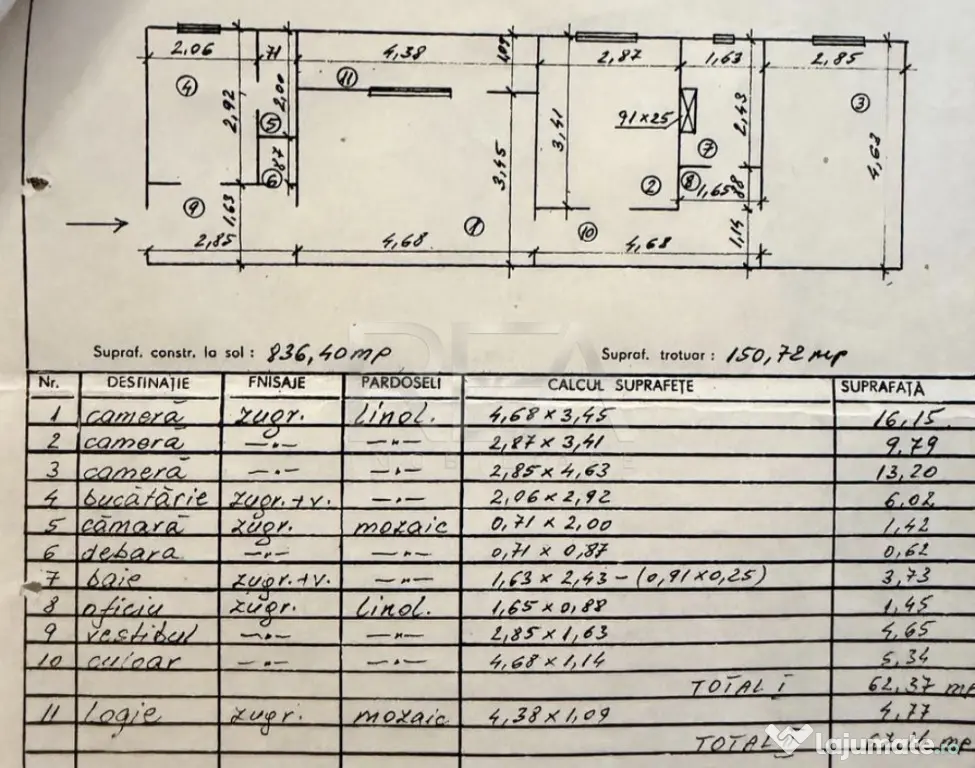 2,06 71 4,38 1,09 2,87 1,63 2,85
4 11 3
2,92 2,00 3,41 91×25 2,43
5 7 4,63
,87 3,45
6 2 8 1,65 ,88
9 1,63 1 10 1,14
2,85 4,68 4,68
Supraf. constr. la sol : 836,40 mp Supraf. trotuar : 150,72 mp
Nr. DESTINAȚIE FNISAJE PARDOSELI CALCUL SUPRAFEȚE SUPRAFAȚĂ
1 cameră zugr. linol. 4,68 × 3,45 16,15
2 cameră —"— —"— 2,87 × 3,41 9,79
3 cameră —"— —"— 2,85 × 4,63 13,20
4 bucătărie zugr.+v. —"— 2,06 × 2,92 6,02
5 cămară zugr. mozaic 0,71 × 2,00 1,42
6 debara —"— —"— 0,71 × 0,87 0,62
7 baie zugr.+v. —"— 1,63 × 2,43 – (0,91 × 0,25) 3,73
8 oficiu zugr. linol. 1,65 × 0,88 1,45
9 vestibul —"— —"— 2,85 × 1,63 4,65
10 culoar —"— —"— 4,68 × 1,14 5,34
TOTAL I 62,37 mp
11 logie zugr. mozaic 4,38 × 1,09 4,77
TOTAL mp
lajumate.ro